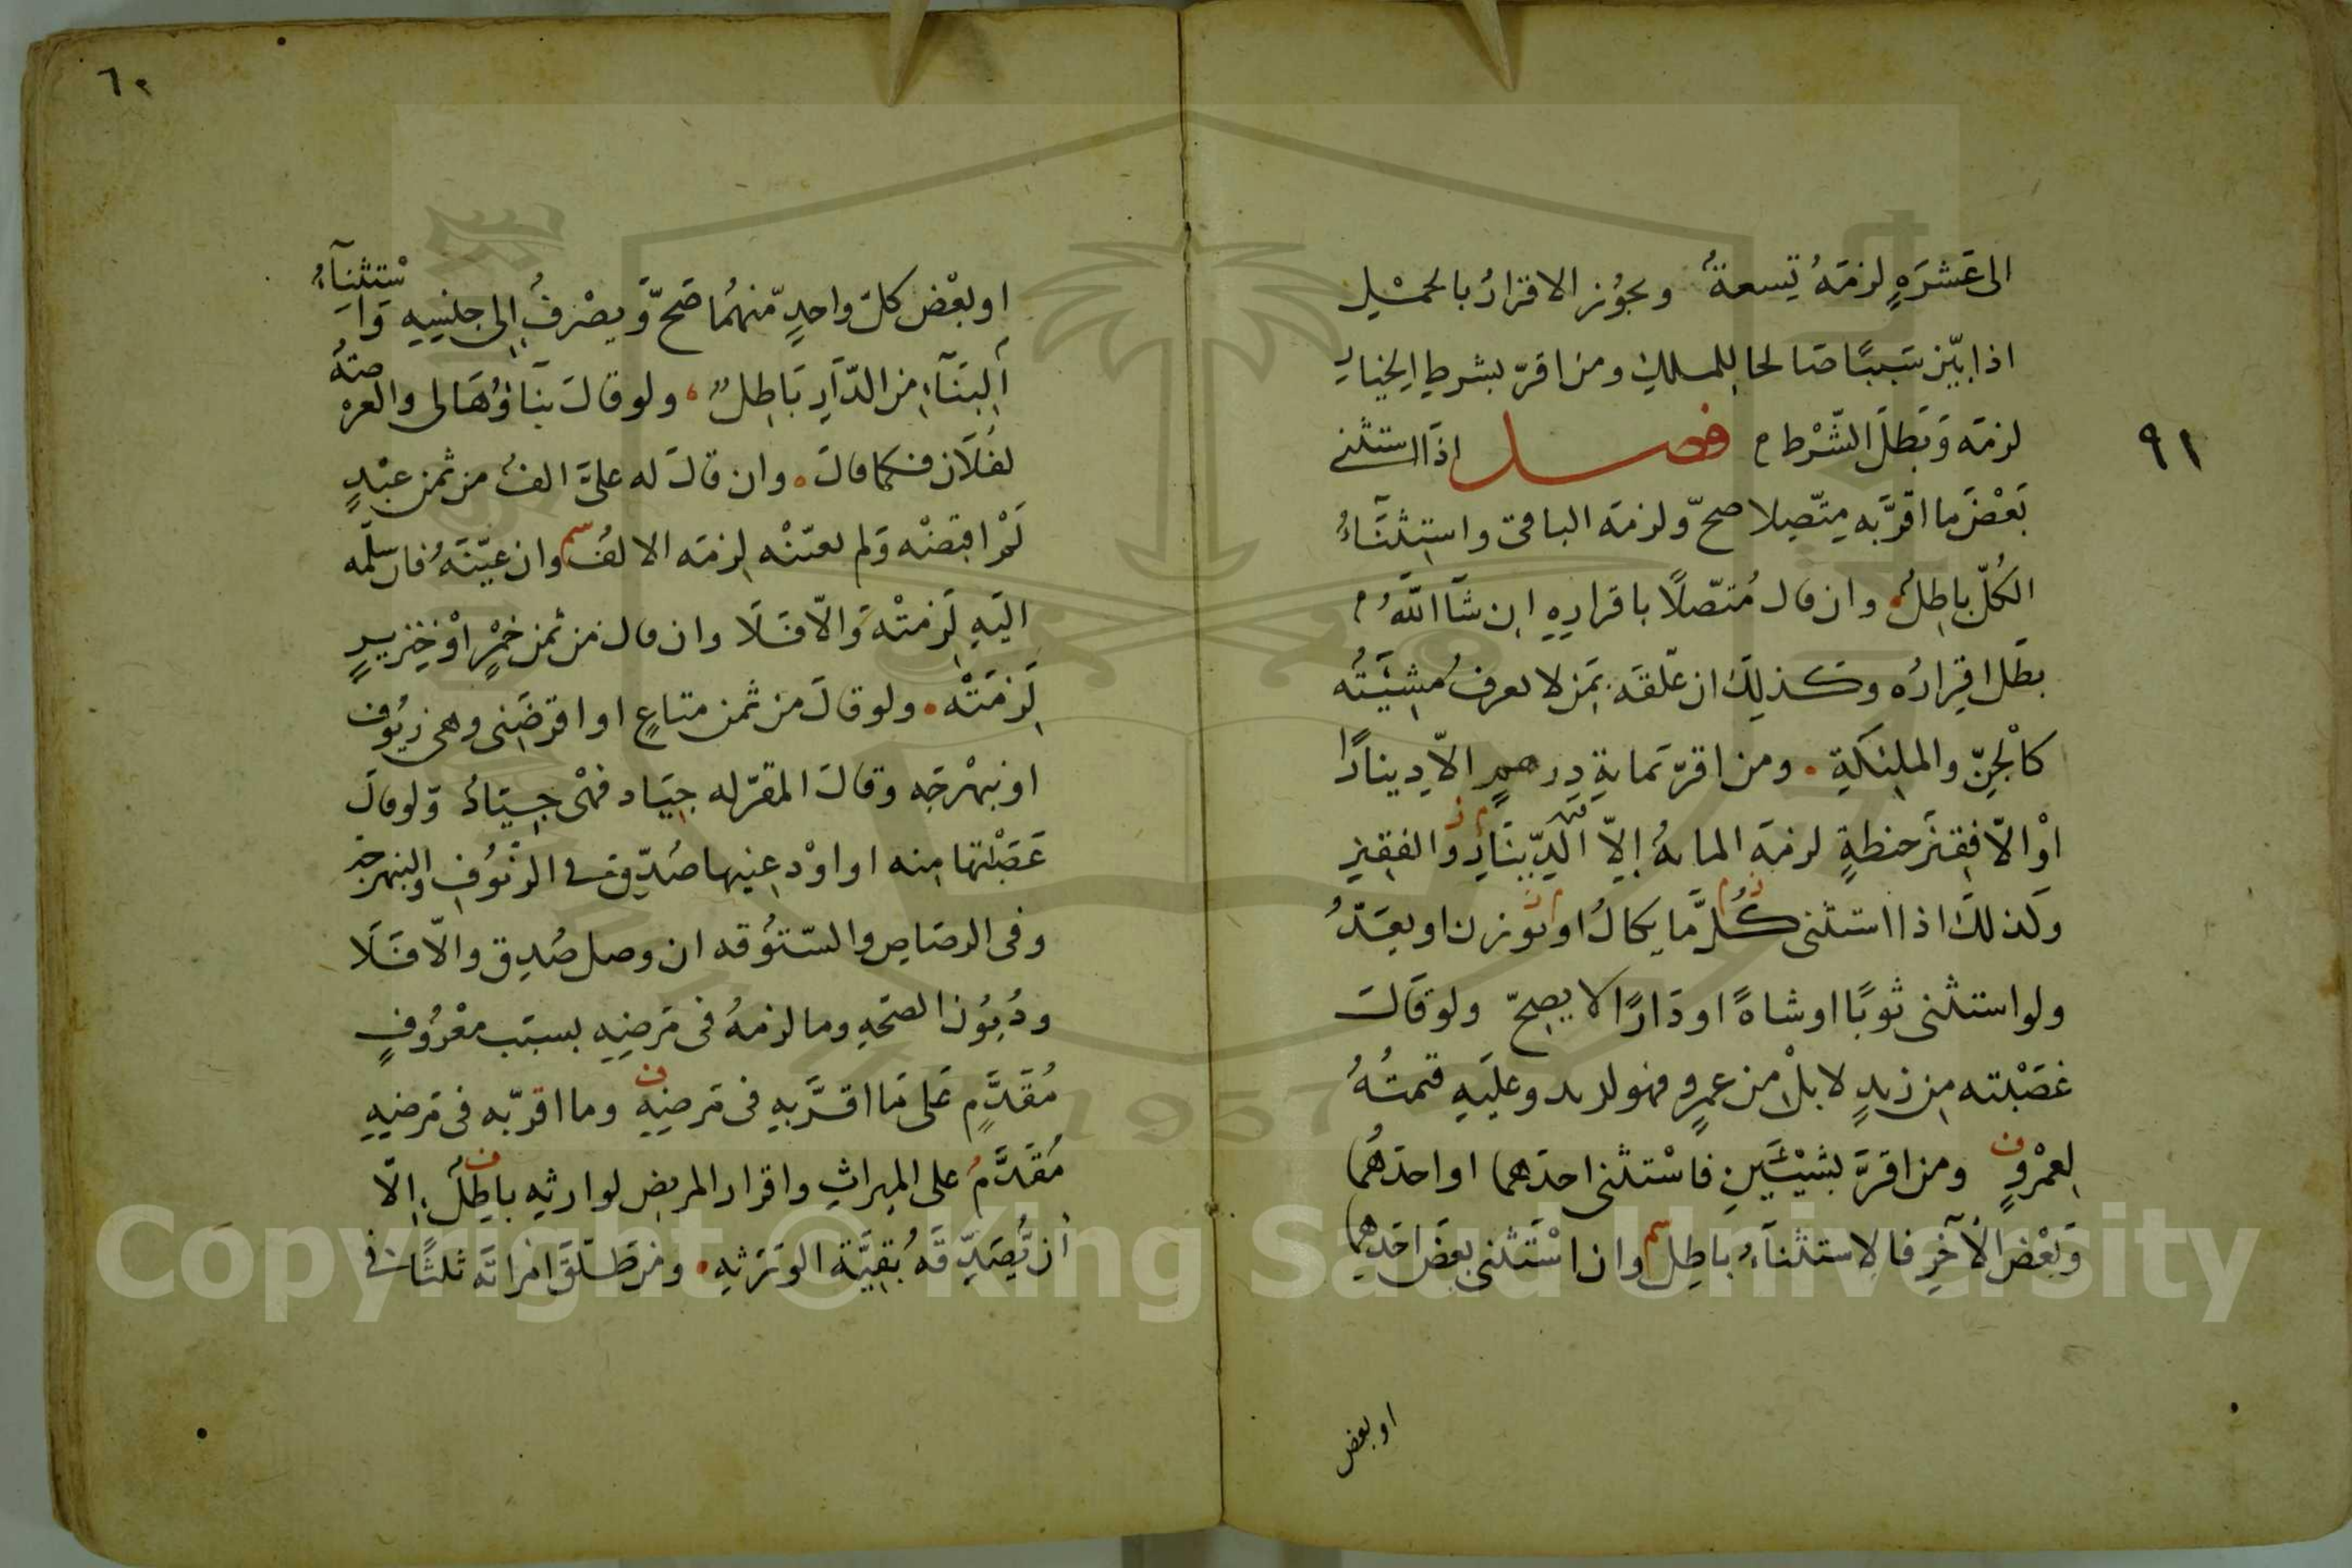 الى عَشرَةٍ لزمَهُ تِسعةٌ ويجوُز الاقرارُ بالحمْلِ
اذا بيّن سَبَبًا صَالحا للملكِ ومن اقرّ بشرطِ الخيارِ
لزمَه وَبَطلَ الشّرْط فصل اذَا استثنى
٩١
بَعْضَ ما اقرَّ به متّصِلا صحّ ولزمَه الباقى واستِثنَاءُ
الكُلّ باطِلٌ وان قال مُتصّلاً باقرارِهِ ان شَآ اللّهُ
بطَل اقِرارُه وكذلِكَ ان علّقَه بمَن لا يعرفُ مَشِيَّتُه
كالجِنّ والملئكَةِ ومن اقرّ بمايةِ درهمٍ الاّ دِينارًا
اوْ الاّ قفِيزَ حنطةٍ لزمَه المايةُ اِلاّ قيمة الدّينَارِ والقفِيزِ
وكَذلكَ اذا استثنى كُلَّ مّا يكالُ او يُوزن او يعَدُّ
ولو استثنى ثوبًا او شاةً او دَارًا لا يصِحّ ولو قَالَ
غصَبْته مِن زيدٍ لا بلْ من عمرٍو فهو لزيد وعليَهِ قيمتُهُ
لعمْرٍو ومن اقرَّ بشيْئَينِ فاسْتثنى احدَهما او احدَهُما
وَبَعْضَ الآخرِ فالاِستثنَآءُ باطِلٌ وان اسْتثنى بعضَ احَدِهما
او بعض
٦٠
او بعْضَ كلّ واحدٍ مّنهُما صَحّ وَيصْرَفُ اِلى جنْسِهِ وَاسْتثنِآءُ
البنَآءِ من الدّارِ بَاطِلٌ ولو قالَ بنَآؤُهَا لى والعرْصَةُ
لفُلَانٍ فكما قالَ وان قالَ له علىَّ الفٌ من ثمن عبْدٍ
لَمْ اقبضْه وَلم يعيّنْه لزمَه الالفُ وان عيّنَهُ فان سلّمه
اليَهِ لَزمتْهُ وَالّا فَلَا وان قال من ثمن خمْرٍ اوْ خِنزيرٍ
لَزمَتْه ولو قالَ من ثمن متاعٍ او اقرضَنى وهى زيُوف
او نبهْرجَه وقالَ المقرّ له جيَاد فهْى جِيَادٌ وَلو قالَ
غَصَبْتها منه او اوْدعنِيها صُدّق فى الزّيُوفِ والنبهرجَة
وفى الرصَاصِ والستّوُقه ان وصل صُدِق والّا فَلَا
ودُيوُن الصحَةِ وما لزمهُ فى مَرضِهِ بسبَبٍ معْرُوفٍ
مُقدَّمٌ عَلى مَا اقَرَّ بهِ فى مَرضِهِ وما اقرّ به فى مَرضِهِ
مُقَدَّمٌ على المِيراثِ واقرار المريضِ لوارثِهِ باطِلٌ اِلّا
أن يُّصَدِّقَه بُقِيَّة الوَرَثِهِ ومَن طَلّقَ امْراتَه ثلثًا فى